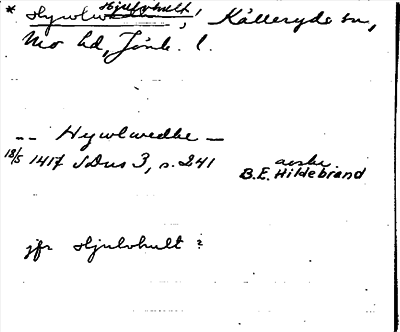 * Hywlw Hjulvhult, Kålleryds sn,
Mo hd, Jönk. l.
-- Hywlwedhe --
18/5 1417 SDns 3, s. 241 avskr.
B.E. Hildebrand
jfr Hjulvhult?